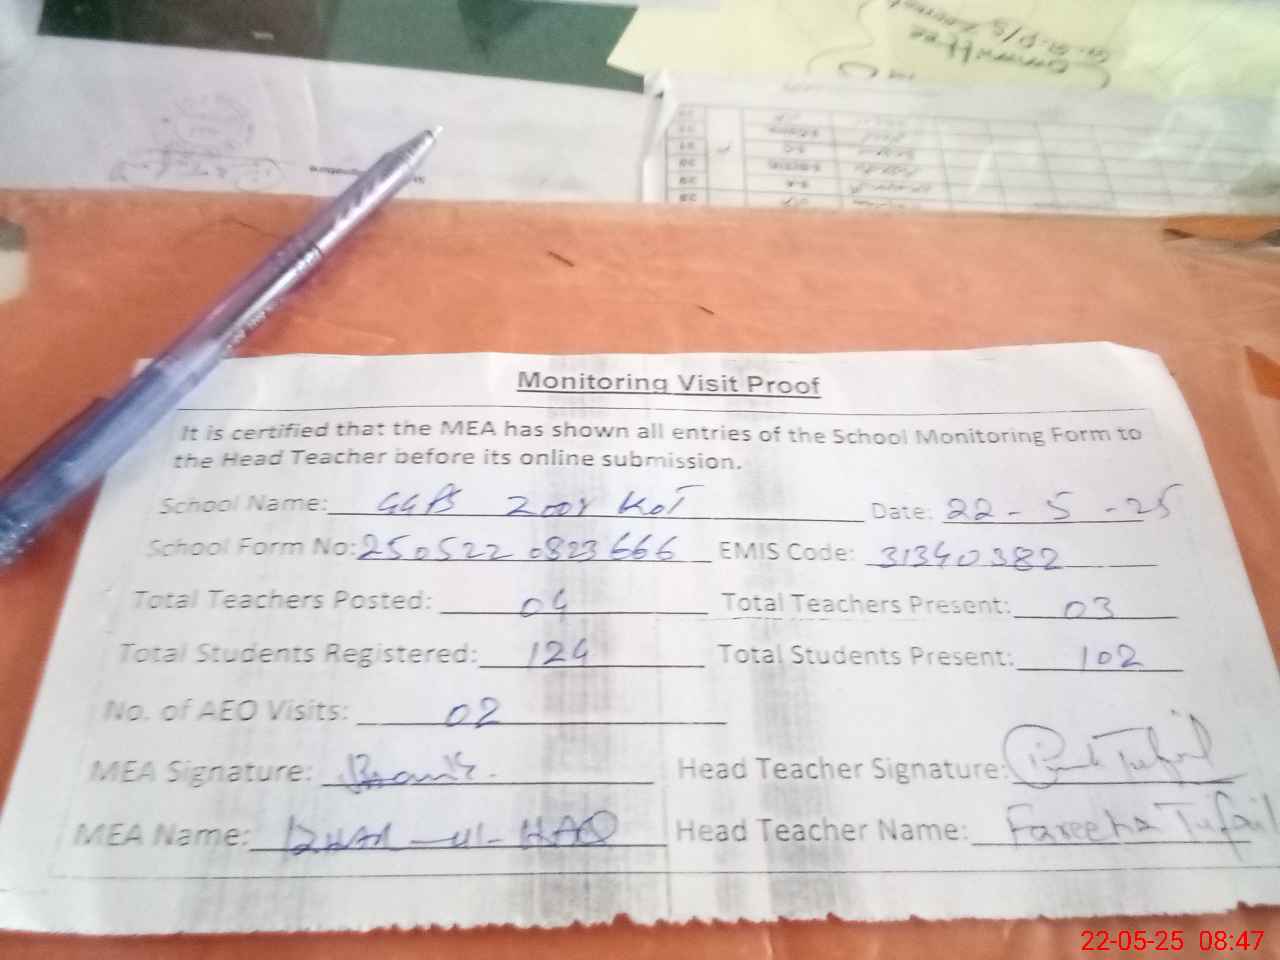 Monitoring Visit Proof
It is certified that the MEA has shown all entries of the School Monitoring Form to
the Head Teacher before its online submission.
School Name: GGPS Zoor KoT Date: 22-5-25
School Form No: 250522 0823666 EMIS Code: 31340382
Total Teachers Posted: 04 Total Teachers Present: 03
Total Students Registered: 124 Total Students Present: 102
No. of AEO Visits: 02
MEA Signature: Head Teacher Signature: Tufail
MEA Name: -ul-HAQ Head Teacher Name: Fareeha Tufail
22-05-25 08:47